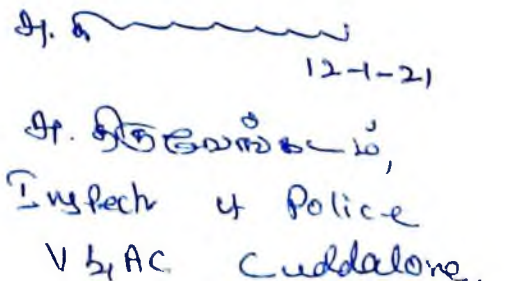 அ. தி
12-1-21
அ. திருவேங்கடம்,
Inspectr of Police
V & AC Cuddalore.